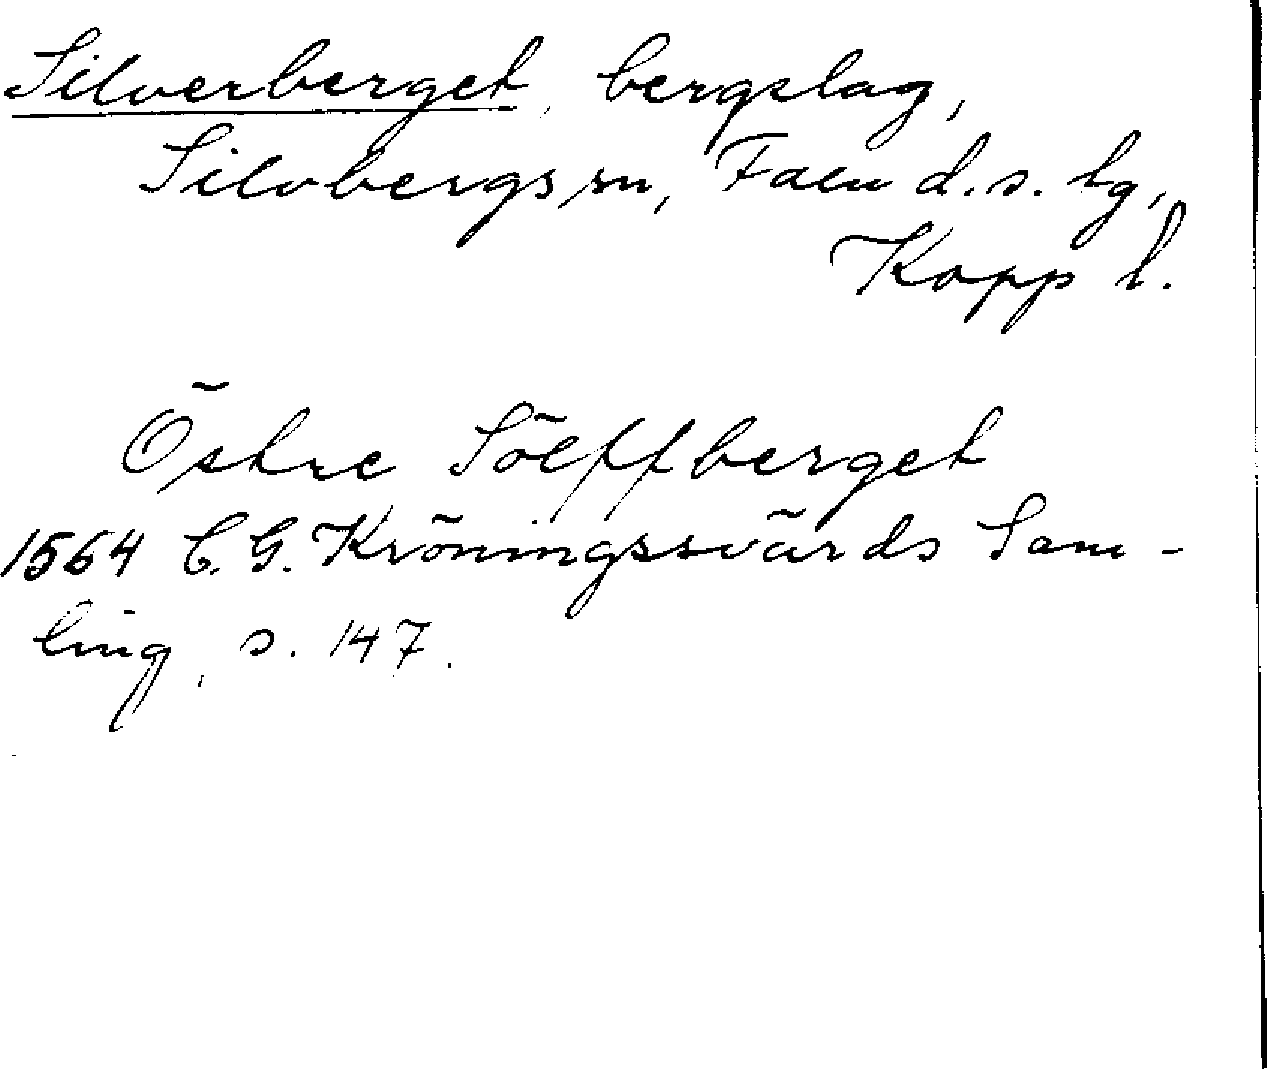 Silverberget, bergslag,
Silvbergs sn, Falu d.s. lg,
Kopp l.
Östre Sölffberget
1564 C. G. Kröningssvärds Sam-
ling, s. 147.